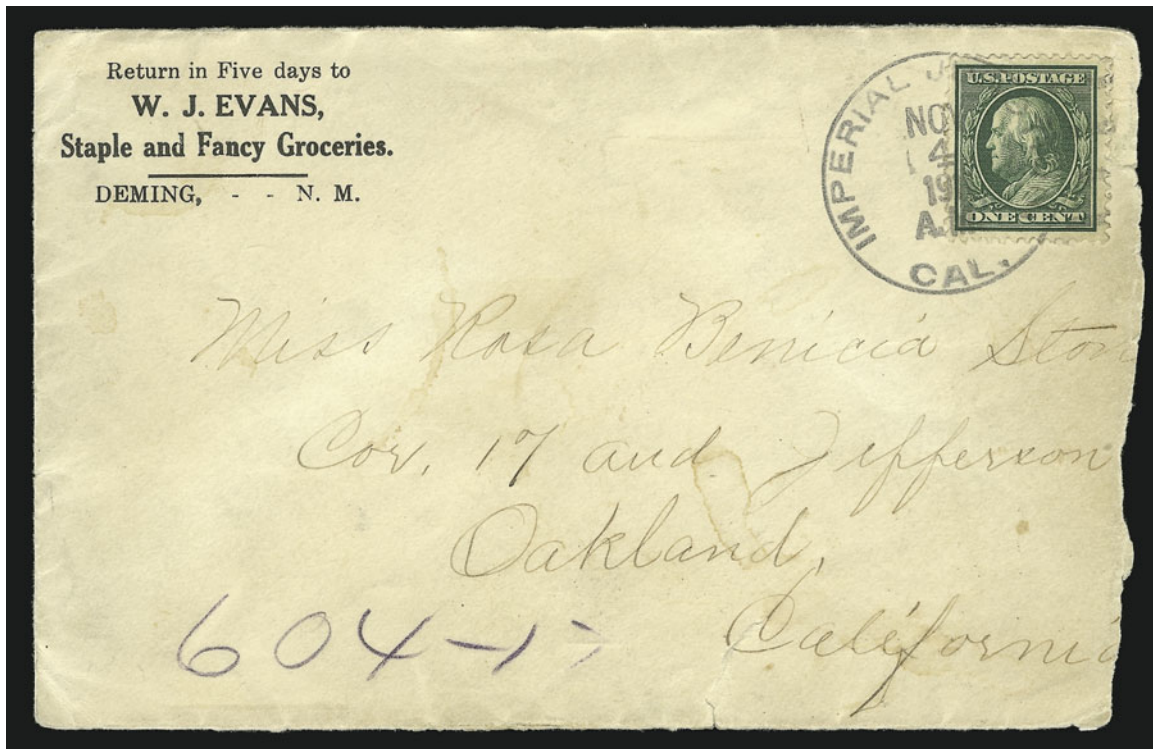 Return in Five days to
W. J. EVANS,
Staple and Fancy Groceries.
DEMING, - - N. M.
IMPERIAL J
NO
4
19
A.M
CAL.
U.S. POSTAGE
ONE CENT
Miss Rosa Benicia Ston
Cor. 17 and Jefferson
Oakland,
California
604-17